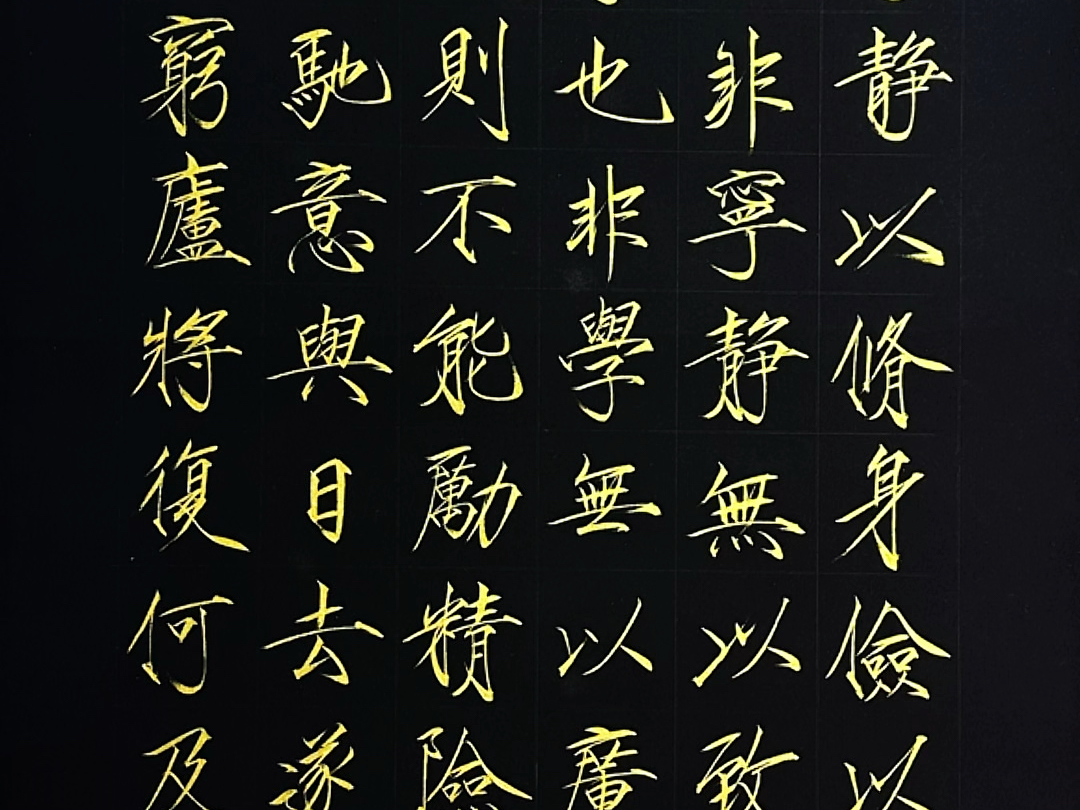 静以脩身儉以
非寧静無以致
也非學無以廣
則不能勵精險
馳意與日去遂
窮廬將復何及